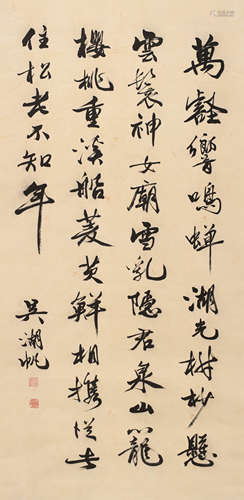 萬壑響鳴蟬湖光樹杪懸
雲鬟神女廟雪乳隱君泉山籠
櫻桃重溪船菱芡鮮相攜從此
住松老不知年
吳湖帆